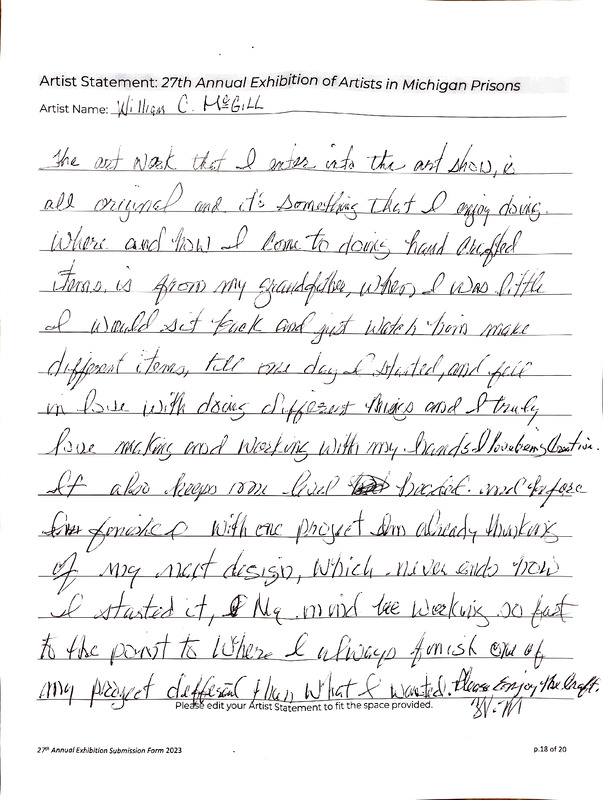 Artist Statement: 27th Annual Exhibition of Artists in Michigan Prisons
Artist Name: William C. McGILL
The art work that I enter into the art show, is
all original and it's something that I enjoy doing.
Where and how I come to doing hand crafted
items, is from my grandfather, when I was little
I would sit back and just watch him make
different items, till one day I started, and fell
in love with doing different things and I truly
love making and working with my hands I love being Creative.
It also keeps me level headed. and before
finished with one project I'm already thinking
of my next design, which never ends how
I started it, My mind be working so fast
to the point to where I always finish one of
my project different than what I wanted. Please Enjoy the Craft.
W.M
Please edit your Artist Statement to fit the space provided.
27th Annual Exhibition Submission Form 2023
p.18 of 20